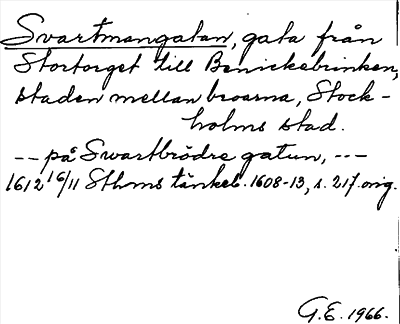 Svartmangatan, gata från
Stortorget till Benickebrinken,
staden mellan broarna, Stock-
holms stad.
-- på Swartbrödre gatun, ---
1612 16/11 Sthms tänkeb. 1608-13, s. 217. orig.
G.E. 1966.